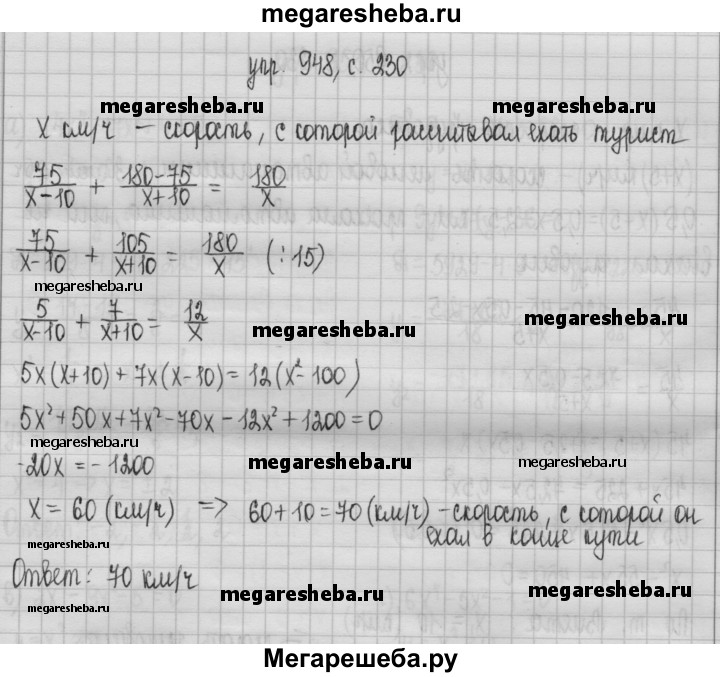 megaresheba.ru
упр. 948, с. 230
megaresheba.ru megaresheba.ru
х км/ч – скорость, с которой рассчитывал ехать турист
75/(х-10) + (180-75)/(х+10) = 180/х
75/(х-10) + 105/(х+10) = 180/х (:15)
megaresheba.ru
5/(х-10) + 7/(х+10) = 12/х
megaresheba.ru megaresheba.ru
5х(х+10)+7х(х-10)=12(х²-100)
5х²+50х+7х²-70х-12х²+1200=0
megaresheba.ru
-20х=-1200
megaresheba.ru megaresheba.ru
х=60 (км/ч) => 60+10=70(км/ч) – скорость, с которой он
ехал в конце пути
megaresheba.ru
Ответ: 70 км/ч
megaresheba.ru megaresheba.ru
megaresheba.ru
Мегарешеба.ру